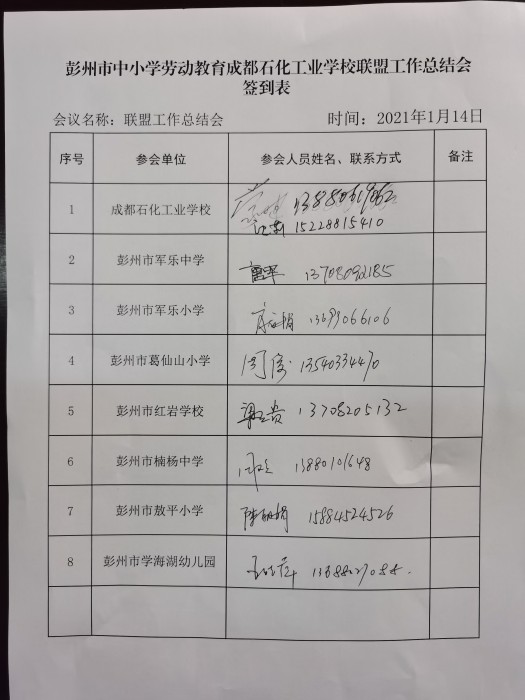 彭州市中小学劳动教育成都石化工业学校联盟工作总结会
签到表
会议名称：联盟工作总结会 时间：2021年1月14日
序号 参会单位 参会人员姓名、联系方式 备注
1 成都石化工业学校
15228815410
2 彭州市军乐中学 曹平 13708092185
3 彭州市军乐小学 13699066106
4 彭州市葛仙山小学 周俊 13540334470
5 彭州市红岩学校 13708205132
6 彭州市楠杨中学 13880101648
7 彭州市敖平小学 15884524526
8 彭州市学海湖幼儿园